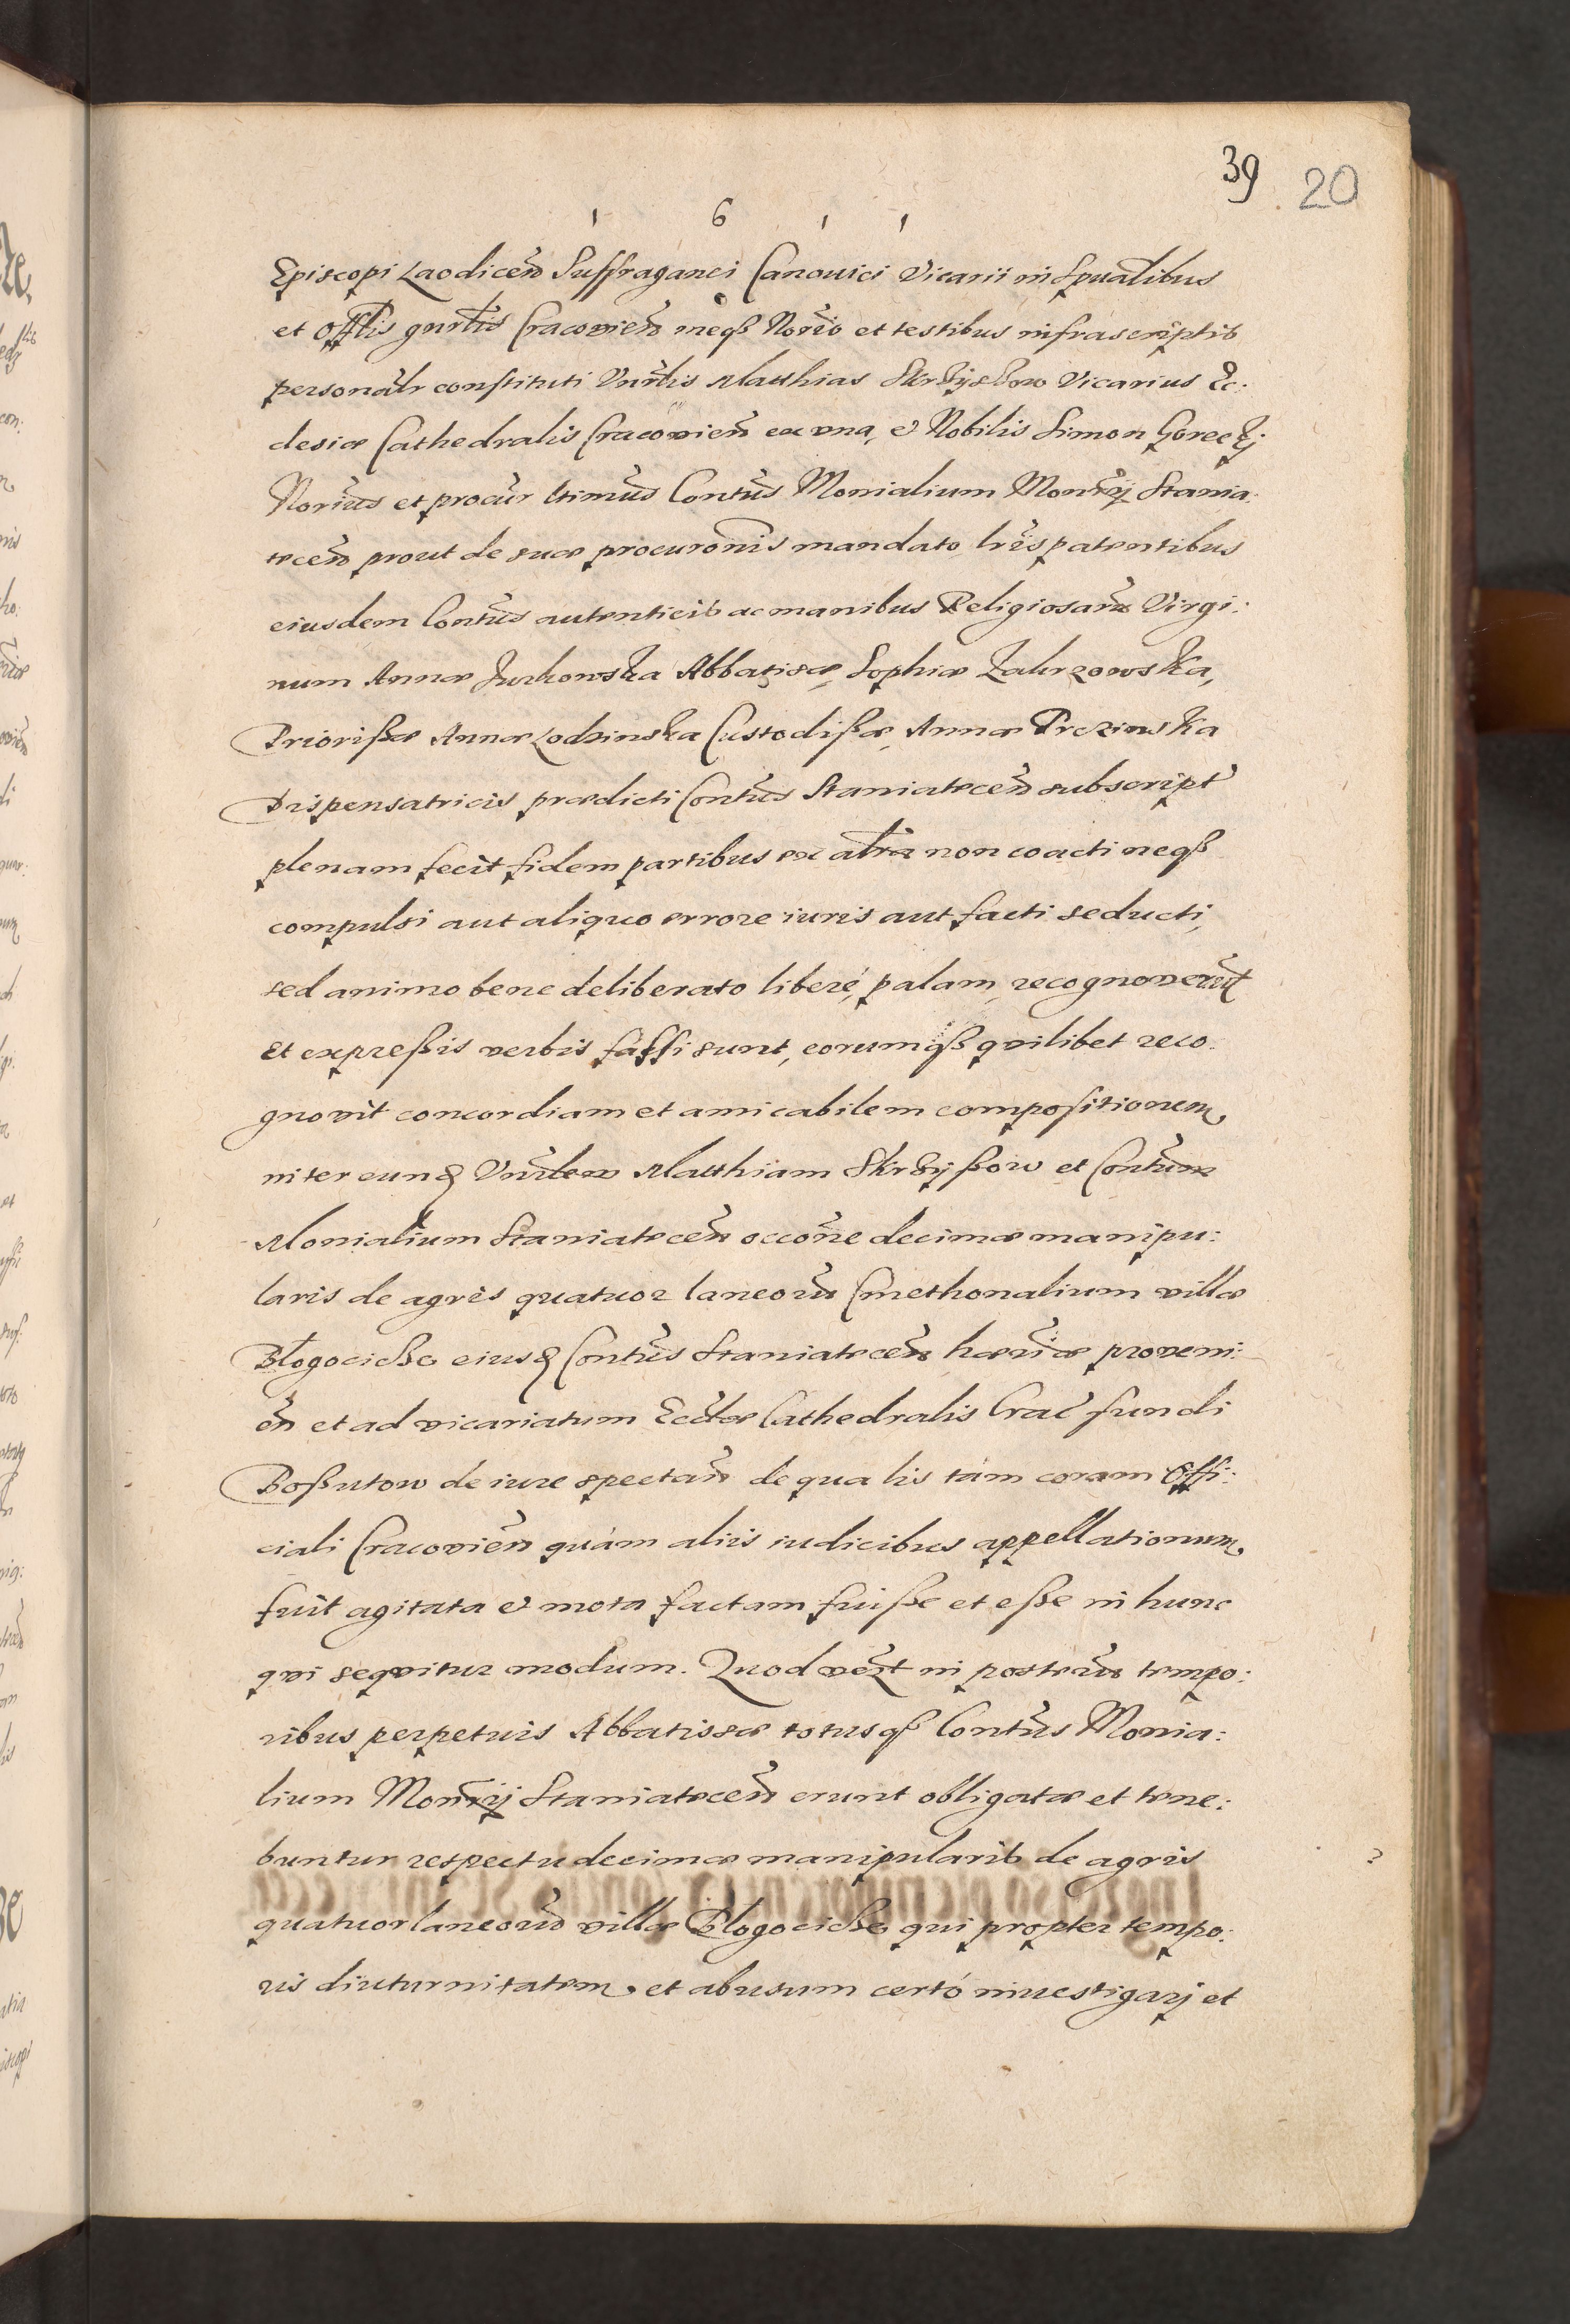 39
20
1 6 1 1
Episcopi Laodiceñ Suffraganei Canonici Vicarii in Spualibus
et Offlis gnrlis Cracovieñ meqȝ Norio et testibus infrascriptis
personalr constituti Vnrlis Matthias Skrzyszow Vicarius Ec:
clesiæ Cathedralis Cracovieñ ex vna, et Nobilis Simon Goreckj
Norius et procur ltimus Contus Monialium Monrij Stania:
teceñ prout de suæ procuronis mandato lris patentibus
eiusdem Contus autenticis ac manibus Religiosaru Virgi:
num Annæ Jurkowska Abbatisæ, Sophiæ Zakrzowska,
Priorißæ Annæ Lodzinska Custodißæ, Annæ Przinska
Dispensatricis prædicti Contus Staniateceñ subscript
plenam fecit fidem partibus ex altra non coacti neqȝ
compulsi aut aliquo errore iuris aut facti seducti,
sed animo bene deliberato liberé, palam, recognoverut
et expreßis verbis faßi sunt, eorumqȝ quilibet reco:
gnovit concordiam et amicabilem compositionem
inter eund Vnrlem Matthiam Skrzyßow et Contum
Monialium Staniateceñ occone decimæ manipu:
laris de agris quatuor laneoru Cmethonalium villæ
Blogocicße eiusd Contus Staniateceñ hæriæ proveni:
eñ et ad vicariatum Ecclæ Cathedralis Crac fundi
Boßutow de iure spectañ de qua lis tam coram Offi:
ciali Cracovieñ quàm aliis iudicibus appellationum
fuit agitata et mota factam fuiße et eße in hunc
qui sequitur modum. Quod vent in posteru tempo:
ribus perpetuis Abbatissæ totusqȝ Contus Monia:
lium Monrij Staniateceñ erunt obligatæ et tene:
buntur respectu decimæ manipularis de agris
quatuor laneoru villæ Blogocicße qui propter tempo:
ris diuturnitatem et abusum certó inuestigarj et